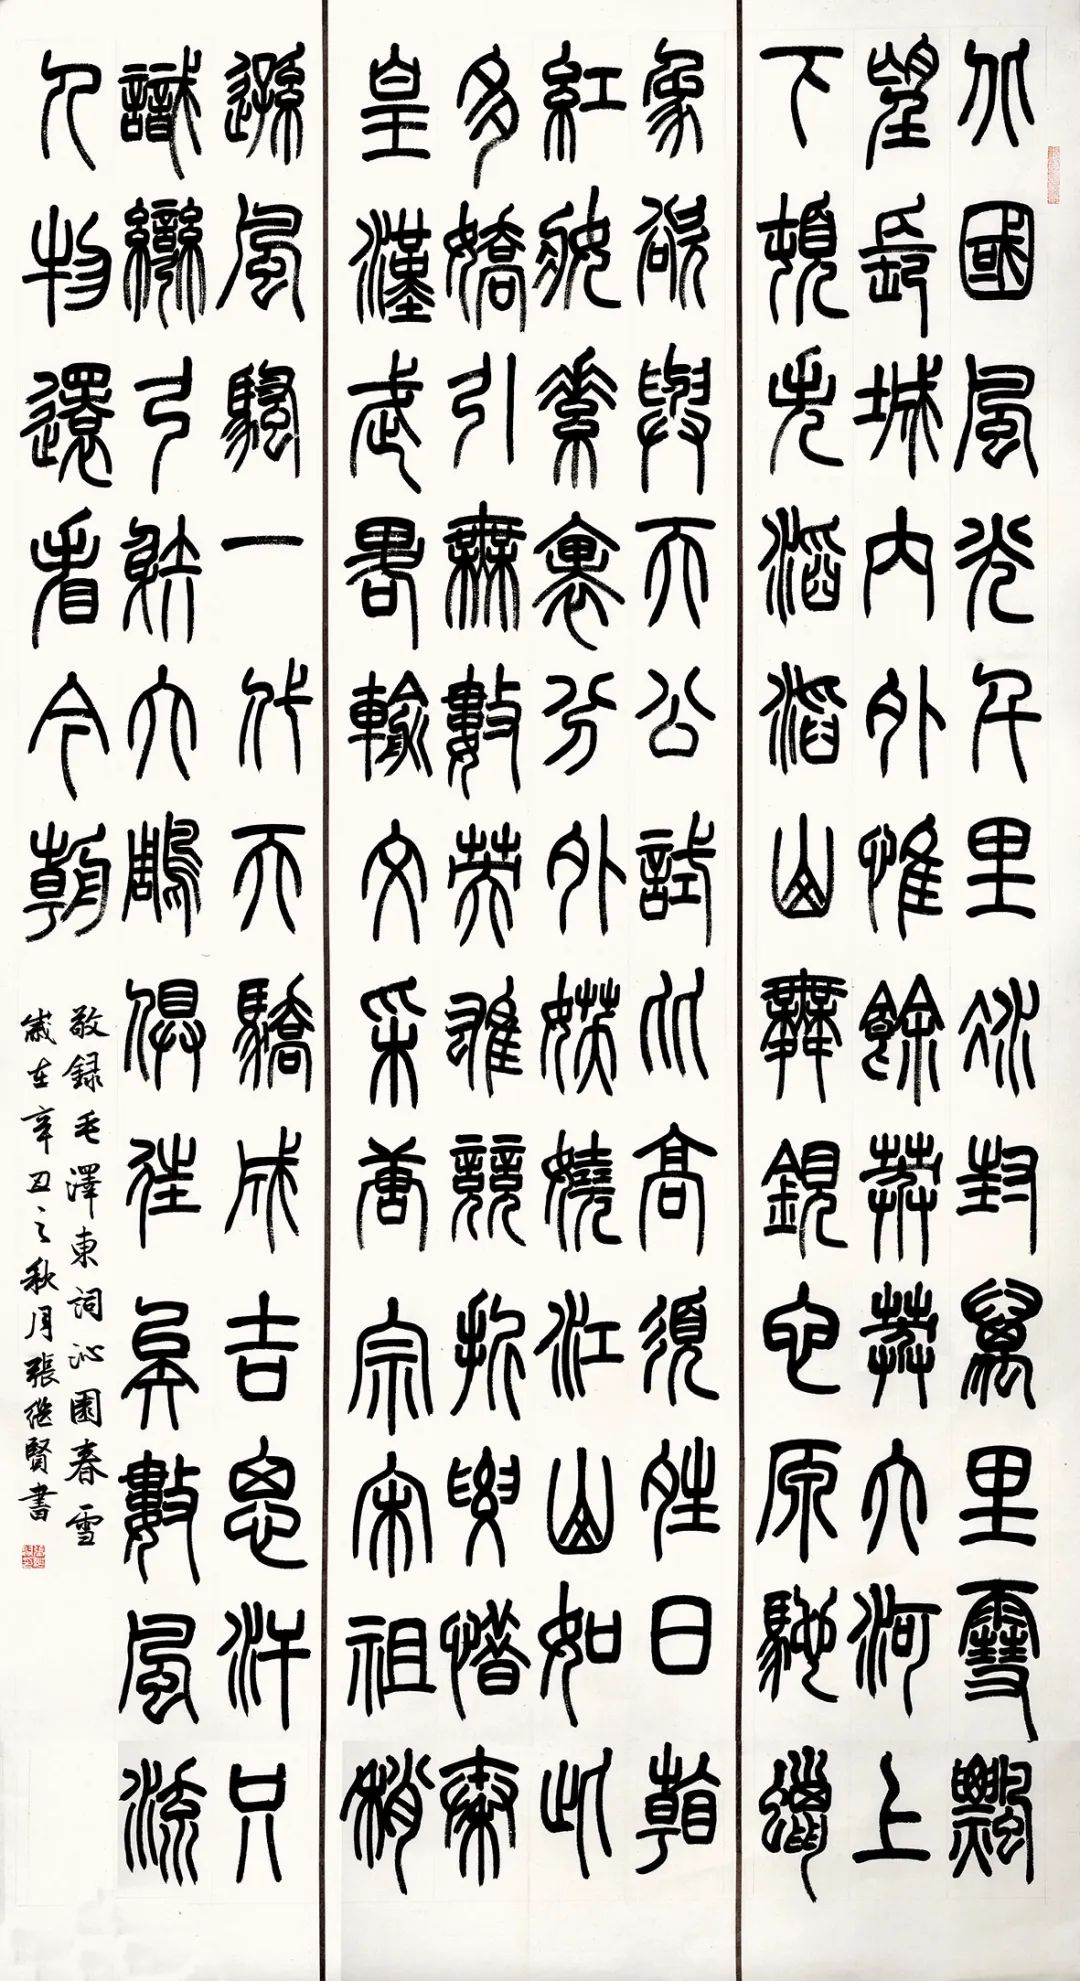 北國風光千里冰封萬里雪飄
望長城內外惟餘莽莽大河上
下頓失滔滔山舞銀蛇原馳蠟
象欲與天公試比高須晴日看
紅裝素裹分外妖嬈江山如此
多嬌引無數英雄競折腰惜秦
皇漢武略輸文采唐宗宋祖稍
遜風騷一代天驕成吉思汗只
識彎弓射大鵰俱往矣數風流
人物還看今朝
敬録毛澤東詞沁園春雪
歲在辛丑之秋月張継賢書